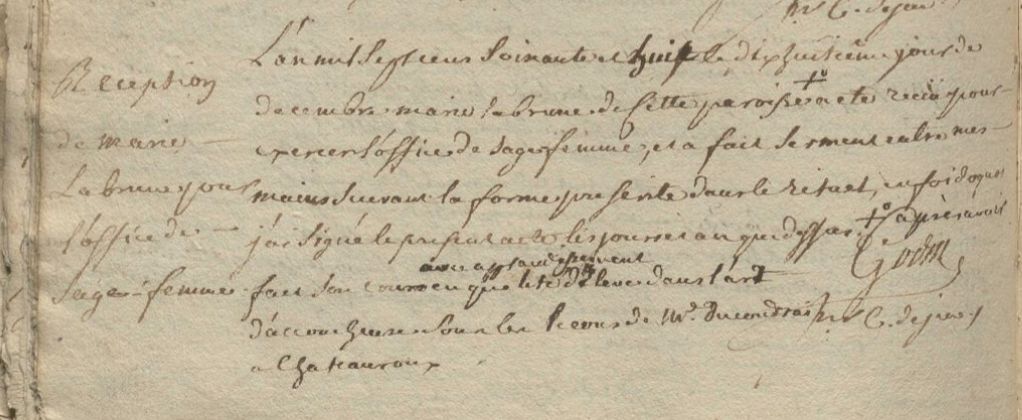 Reception
de marie
La brune pour
l'office de
sage-femme
L'an mil sept cens soixante et huit le dixhuitieme jour de
decembre marie la brune de cette paroisse +o a eté reçüe pour
exercer l'office de sage femme, et a fait serment entre mes
mains suivant la forme prescrite dans le rituel, en foi de quoi
j'ai signé le present acte les jours et an que dessus. +o après avoir
fait son cours en qualité d'eleve dans l'art
avec applaudissement
d'accoucheuse sous les leçons de Md. Ducoudrai
a Chateauroux